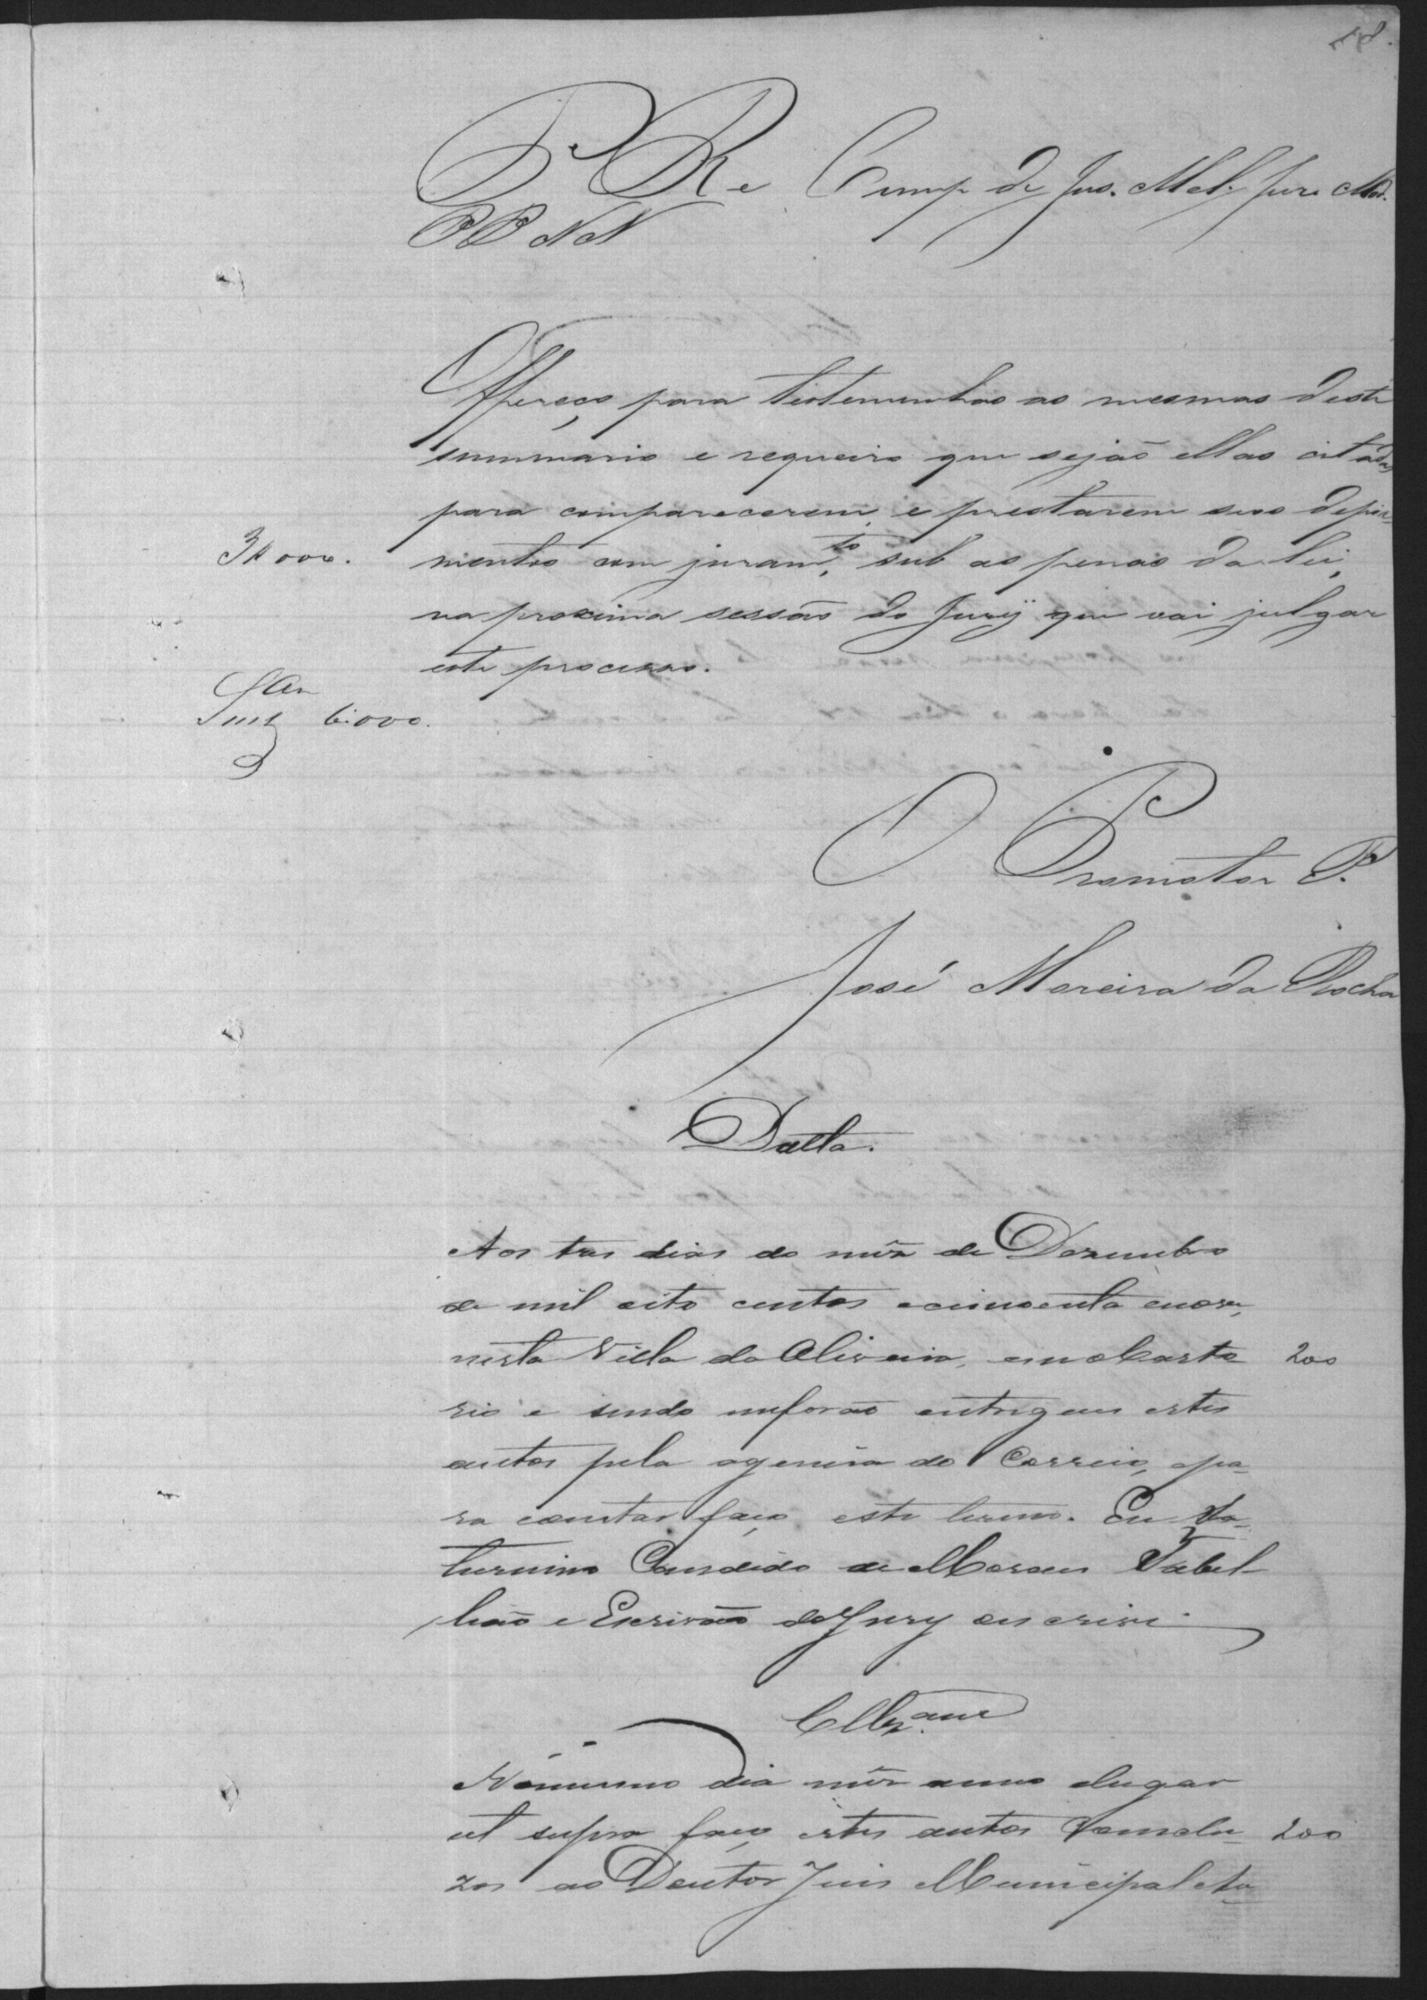 18.
P. R. e Cump de Jus.
P P N N
Offereço para testemunhas as mesmas deste
summario e requeiro que sejão ellas citadas
para comparecerem, e prestarem seus depoi-
3$000. mentos com juramto, sub as penas da lei,
na proxima sessão do Jury que vai julgar
este processo.
6:000.
O Promotor P.
José Moreira da Rocha
Datta.
Aos tres dias do mêz de Dezembro
de mil oito centos e cincoenta e nove,
nesta Villa da Oliveira, em o Carto 200
rio e sendo me forão entregues estes
autos pela agencia do Correio, e pa-
ra constar faço este termo. Eu Sa-
turnino Candido de Moraes Tabel-
lião e Escrivão do Jury o escrivi.
Cllzam
No mesmo dia mêz anno e lugar
ut supra faço estes autos Conclu- 200
zos ao Doutor Juis Municipal